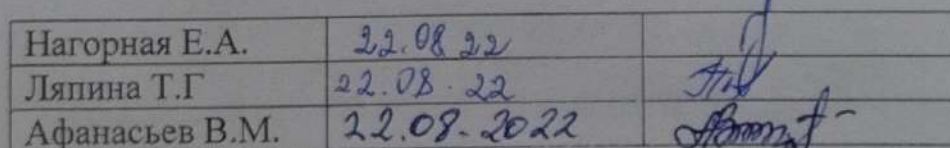 Нагорная Е.А. 22.08 22
Ляпина Т.Г 22.08.22
Афанасьев В.М. 22.08.2022